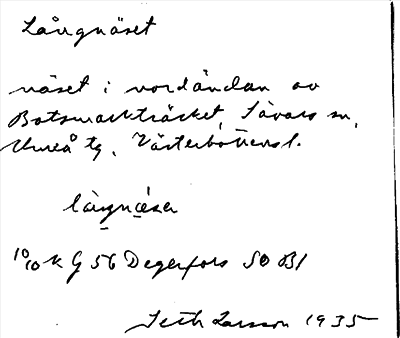 Långnäset
näset i nordändan av
Botsmarkträsket, Sävars sn,
Umeå tg, Västerbottens l.
långnäsen
10/10 K G 56 Degerfors SO Bl
Seth Larsson 1935